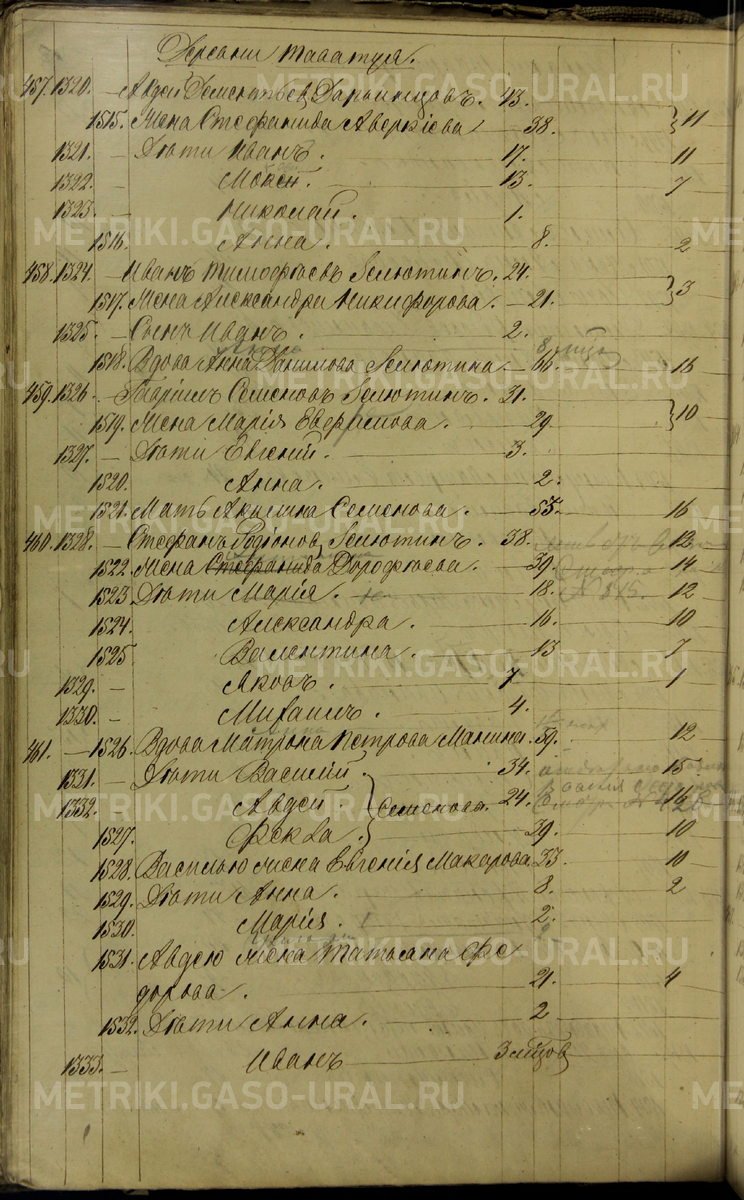 Деревни Таватуя.
457. 1320. — Авдей Дементьев Дарьинцовъ. 43.
1515. Жена Стефанида Аверкіева — 38. } 11
1321. — Дѣти Иванъ. 17. 11
1322. — Моѵсей. 13. 7
1323. — Николай. 1.
1516. Анна. 8. 2
458. 1324. — Иванъ Тимофѣевъ Телютинъ. 24.
1517. Жена Александра Никифорова. — 21. } 3
1325. — Сынъ Иванъ. 2.
1518. Вдова Анна Данилова Телютина — 16
459. 1326. — Гавріилъ Семеновъ Телютинъ. 31.
1519. Жена Марія Еверисмова. 29 } 10
1327. — Дѣти Евгеній. 3.
1520. Анна. 2.
1521. Мать Акилина Семенова. — 55. 16
460. 1328. — Стефанъ Родіоновъ Телютинъ. 38. 12
1522. Жена Дорофѣева. — 39. 14
1523. Дѣти Марія. 18. 12
1524. Александра. 16. 10
1525 Валентина. 13 7
1329. — Яковъ. 7 1
1330. — Михаилъ. 4.
461. — 1526. Вдова Матрона Петрова Манина. 59. 12
1331. — Дѣти Василій. 34. 15.
1332. — Авдей. } Семеновы. 24.
1527. Ѳекла. 39. 10
1528. Василью жена Евгенія Макарова 33. 10
1529. Дѣти Анна. 8. 2
1530. Марія. 2.
1531. Авдею жена Татьяна Ѳео
дорова. 21. 4
1532. Дѣти Анна. 2
1333. — Иванъ 3 мѣсяцовъ
METRIKI.GASO-URAL.RU